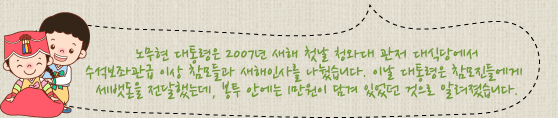 노무현 대통령은 2007년 새해 첫날 청와대 관저 대식당에서
수석보좌관급 이상 참모들과 새해인사를 나눴습니다. 이날 대통령은 참모진들에게
세뱃돈을 전달했는데, 봉투 안에는 1만원이 담겨 있었던 것으로 알려졌습니다.